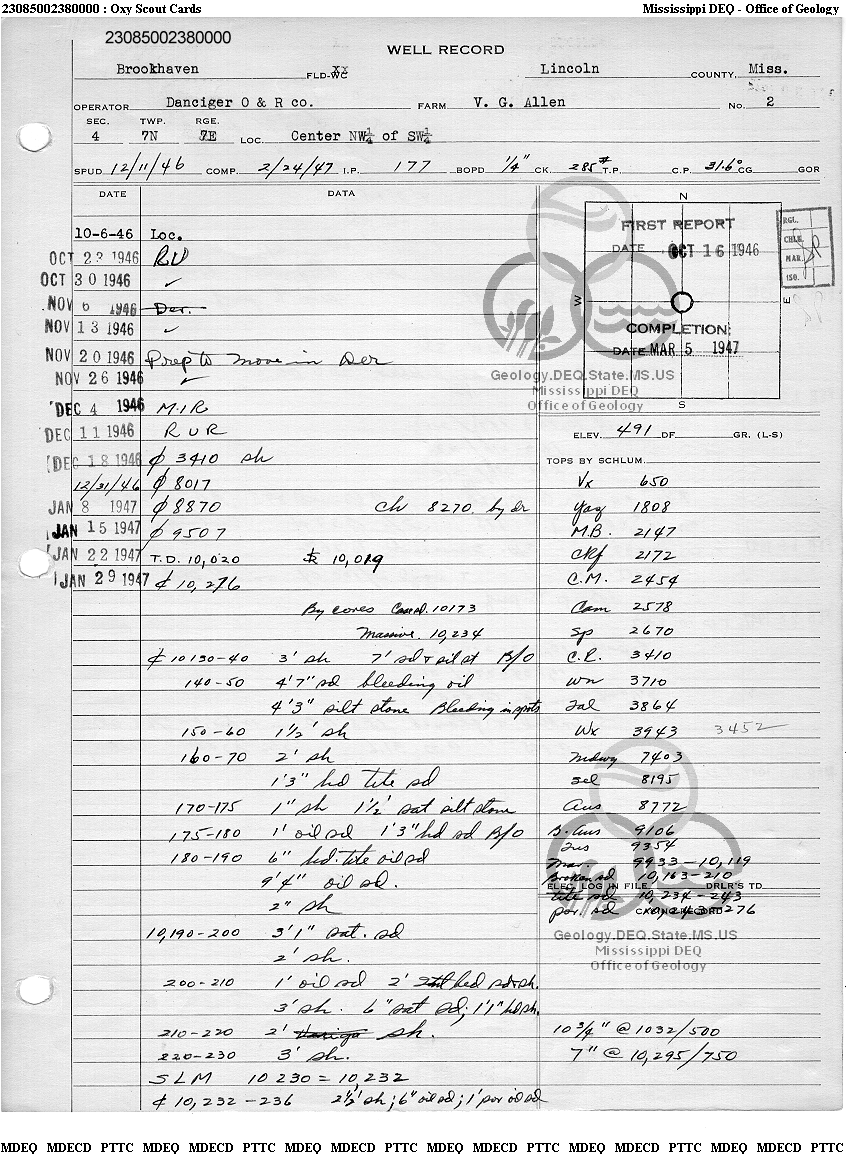 23085002380000 : Oxy Scout Cards Mississippi DEQ - Office of Geology
23085002380000
WELL RECORD
Brookhaven FLD-WC xx Lincoln COUNTY, Miss.
OPERATOR Danciger O & R co. FARM V. G. Allen No. 2
SEC. TWP. RGE.
4 7N 7E LOC. Center NW¼ of SW¼
SPUD 12/11/46 COMP. 2/24/47 I.P. 177 BOPD ¼" CK. 285# T.P. C.P. 31.6° CG GOR
DATE DATA
10-6-46 Loc.
OCT 23 1946 RU
OCT 30 1946 ✓
NOV 6 1946 Der.
NOV 13 1946 ✓
NOV 20 1946 Prep to move in Der
NOV 26 1946 ✓
DEC 4 1946 M.I.R
DEC 11 1946 R U R
DEC 18 1946 ₵ 3410 sh
12/31/46 ₵ 8017
JAN 8 1947 ₵ 8870 Ch 8270 by dr
JAN 15 1947 ₵ 9507
JAN 22 1947 T.D. 10,020 10,019
JAN 29 1947 ₵ 10,276
By cores 10173
Massive 10,234
₵ 10130-40 3' sh 7' sd & silst B/O
140-50 4'7" sd bleeding oil
4'3" silt stone Bleeding in spots
150-60 1½' sh
160-70 2' sh
1'3" hd tite sd
170-175 1" sh 1½' sat silt stone
175-180 1' oil sd 1'3" hd sd B/O
180-190 6" hd. tite oil sd
9'4" oil sd.
2" sh
10,190-200 3'1" sat. sd
2' sh.
200-210 1' oil sd 2' hd sd & sh.
3' sh. 6" sat sd; 1'1" hd sh.
210-220 2' sh.
220-230 3' sh.
SLM 10 230 = 10,232
₵ 10,232-236 2½' sh; 6" oil sd; 1' por oil sd
N
FIRST REPORT
DATE OCT 16 1946
W E
COMPLETION:
DATE MAR 5 1947
S
RGL.
CHLK.
MAR.
ISO.
Geology.DEQ.State.MS.US
Mississippi DEQ
Office of Geology
ELEV. 491 DF GR. (L-S)
TOPS BY SCHLUM.
Vx 650
Yaz 1808
M.B. 2147
Ckf 2172
C.M. 2454
Cam 2578
Sp 2670
C.R. 3410
Wn 3710
Tal 3864
Wx 3943 3452
Mdwy 7403
Sel 8195
Aus 8772
B. Aus 9106
9354
Mar. 9933-10,119
Broken sd 10,163-210
ELEC. LOG IN FILE DRLR'S TD
tite sd 10,234-243
por. sd 10,243-276
Geology.DEQ.State.MS.US
Mississippi DEQ
Office of Geology
10¾" @ 1032/500
7" @ 10,295/750
MDEQ MDECD PTTC MDEQ MDECD PTTC MDEQ MDECD PTTC MDEQ MDECD PTTC MDEQ MDECD PTTC MDEQ MDECD PTTC